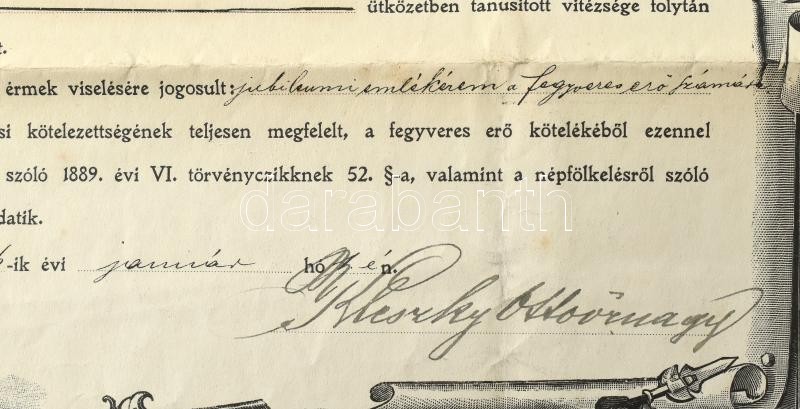 ütközetben tanusított vitézsége folytán
t.
érmek viselésére jogosult: jubileumi emlékérem a fegyveres erő számára
si kötelezettségének teljesen megfelelt, a fegyveres erő kötelékéből ezennel
szóló 1889. évi VI. törvényczikknek 52. §-a, valamint a népfölkelésről szóló
darabanth
datik.
-ik évi január hó én.
Ottó őrnagy